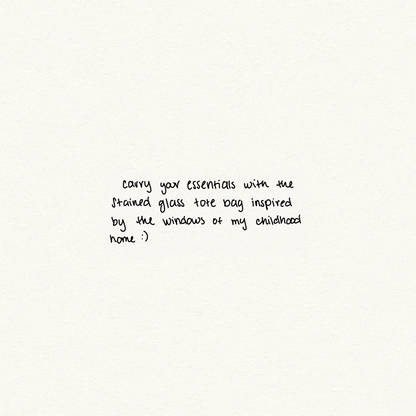 carry your essentials with the
stained glass tote bag inspired
by the windows of my childhood
home :)